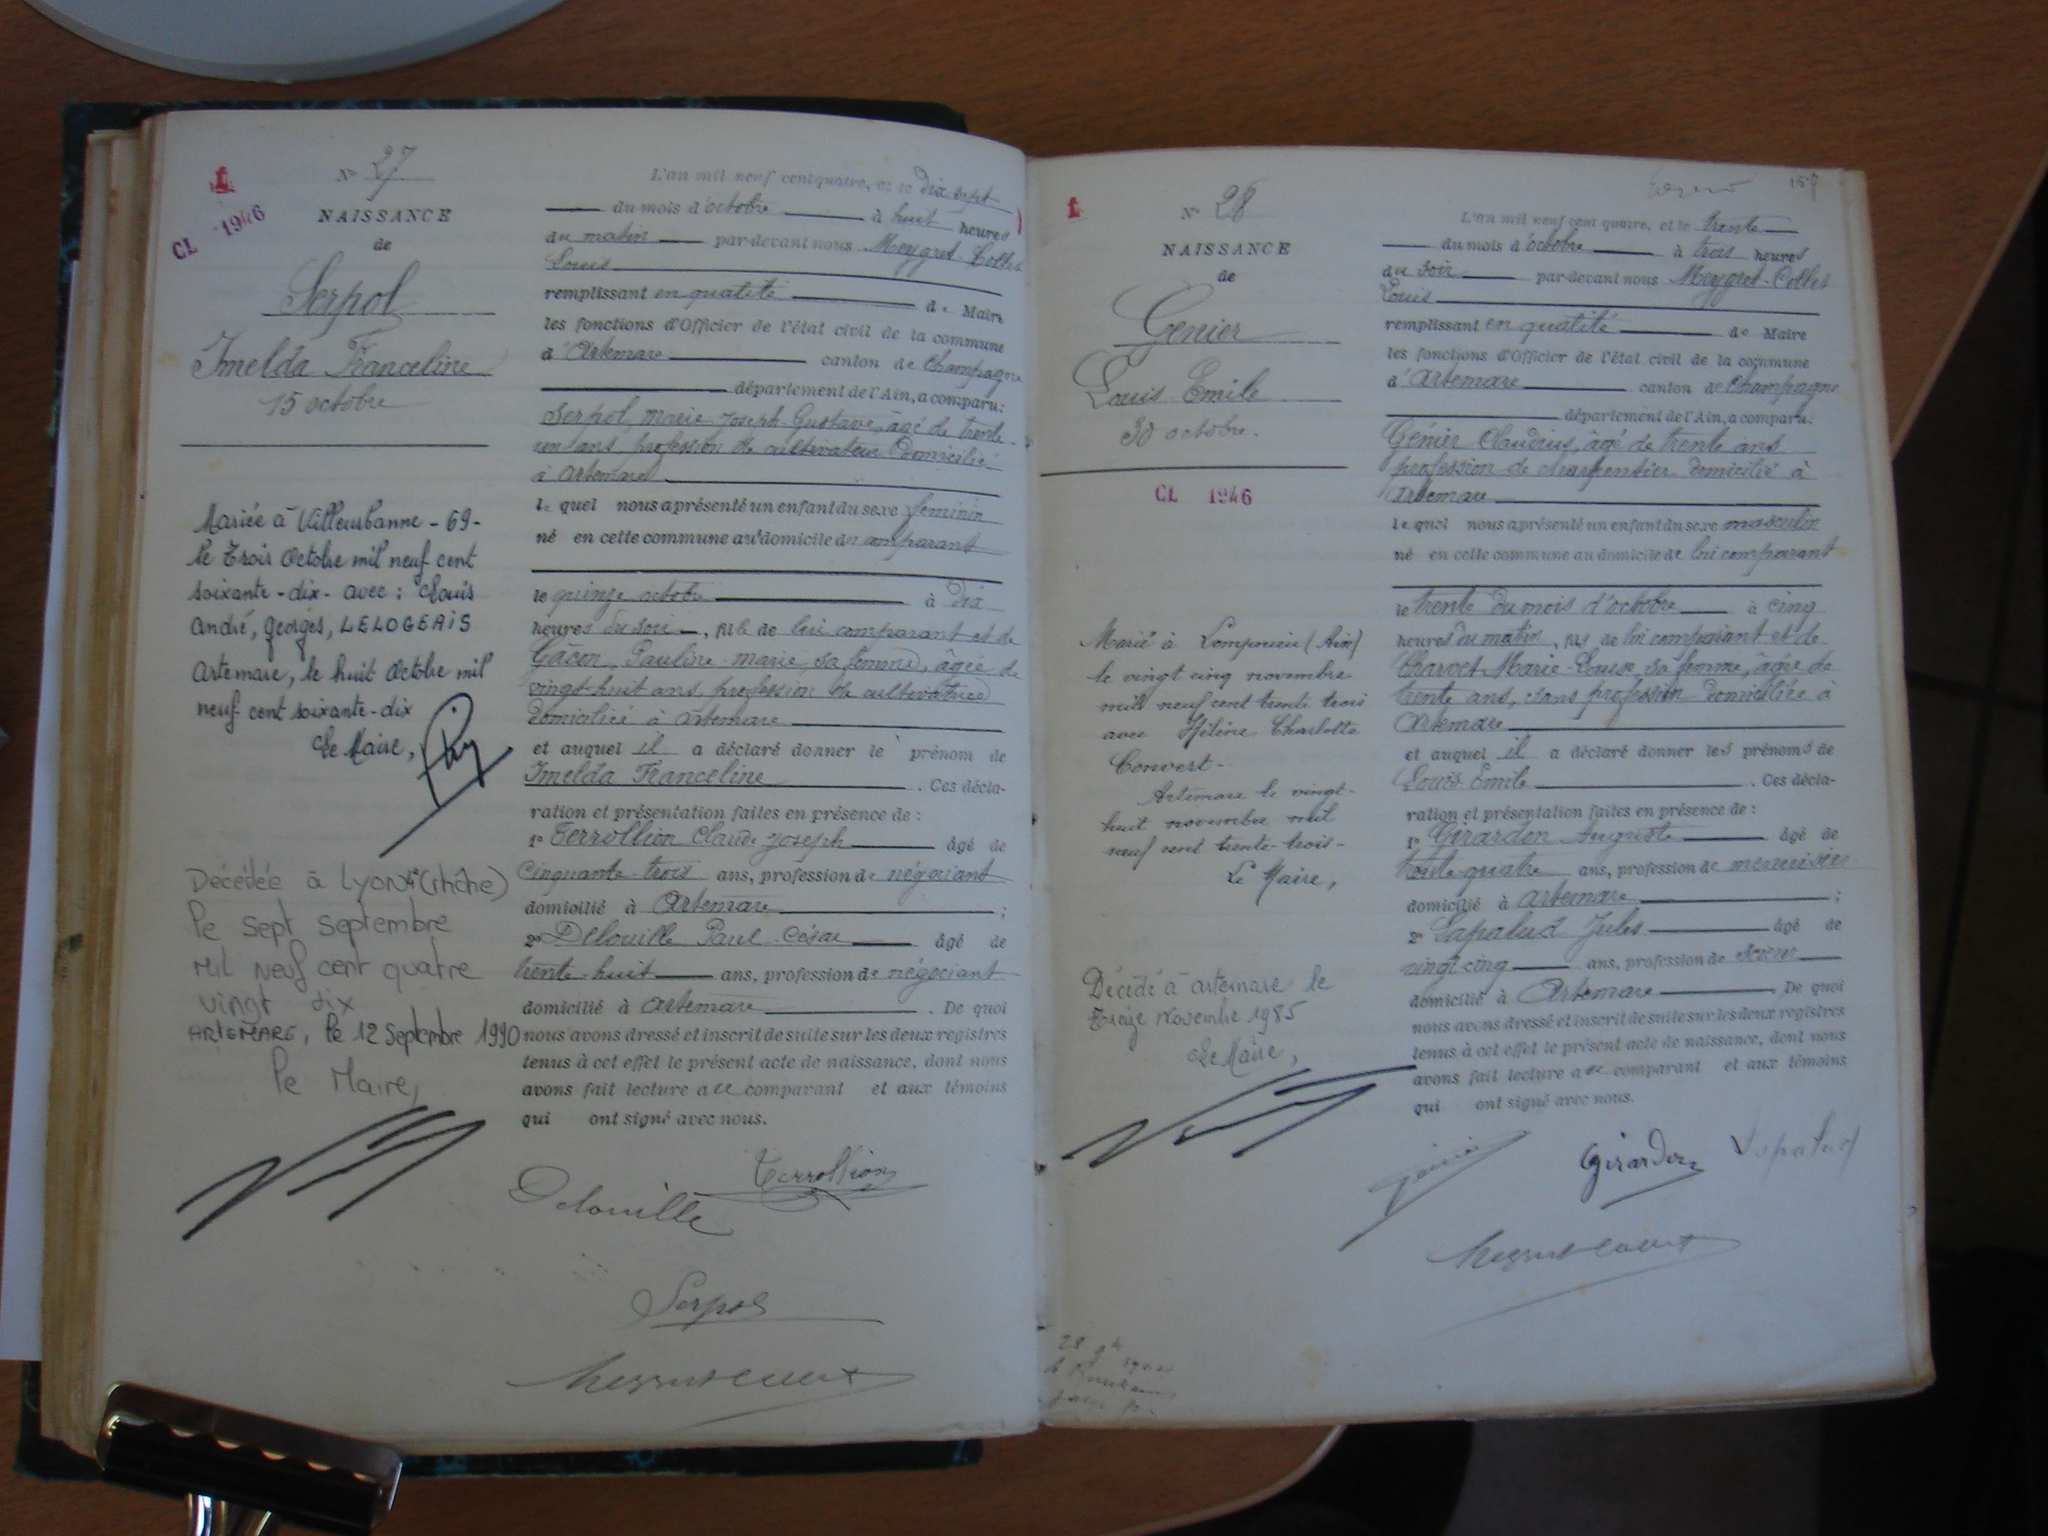 1
CL 1946
N° 27
NAISSANCE
de
Serpol
Imelda Franceline
15 octobre
Mariée à Villeurbanne - 69 -
le Trois Octobre mil neuf cent
soixante - dix - avec : Louis
André, Georges, LELOGEAIS
Artemare, le huit Octobre mil
neuf cent soixante-dix
Le Maire,
Décédée à Lyon (Rhône)
le sept septembre
Mil neuf cent quatre
vingt dix
ARTEMARE, le 12 septembre 1990
le Maire,
L'an mil neuf cent quatre, et le dix sept
du mois d'octobre à huit heures
du matin par-devant nous Meygret-Collet
Louis
remplissant en qualité de Maire
les fonctions d'Officier de l'état civil de la commune
d'Artemare canton de Champagne
département de l'Ain, a comparu:
Serpol, Marie Joseph Gustave, âgé de trente
un ans, profession de cultivateur domicilié
à Artemare
le quel nous a présenté un enfant du sexe féminin
né en cette commune au domicile du comparant
le quinze octobre à dix
heures du soir, fille de lui comparant et de
Gacon, Pauline Marie, sa femme, âgée de
vingt-huit ans, profession de cultivatrice
domiciliée à Artemare
et auquel il a déclaré donner le prénom de
Imelda Franceline. Ces décla-
ration et présentation faites en présence de :
1° Terrollion Claude Joseph âgé de
cinquante-trois ans, profession de négociant
domicilié à Artemare ;
2° Delouille Paul César âgé de
trente-huit ans, profession de négociant
domicilié à Artemare. De quoi
nous avons dressé et inscrit de suite sur les deux registres
tenus à cet effet le présent acte de naissance, dont nous
avons fait lecture au comparant et aux témoins
qui ont signé avec nous.
Terrollion
Delouille
Serpol
157
1
N° 28
NAISSANCE
de
Genier
Louis Emile
30 octobre.
CL 1946
Marié à Lompnieu (Ain)
le vingt cinq novembre
mil neuf cent trente trois
avec Hélène Charlotte
Convert -
Artemare le vingt-
huit novembre mil
neuf cent trente-trois -
Le Maire,
Décédé à Artemare le
Treize Novembre 1985
Le Maire,
L'an mil neuf cent quatre, et le trente
du mois d'octobre à trois heures
du soir par-devant nous Meygret-Collet
Louis
remplissant en qualité de Maire
les fonctions d'Officier de l'état civil de la commune
d'Artemare canton de Champagne
département de l'Ain, a comparu:
Génier Claudius, âgé de trente ans
profession de charpentier domicilié à
Artemare
le quel nous a présenté un enfant du sexe masculin
né en cette commune au domicile de lui comparant
le trente du mois d'octobre à cinq
heures du matin, fils de lui comparant et de
Charvet Marie-Louise, sa femme, âgée de
trente ans, sans profession domiciliée à
Artemare
et auquel il a déclaré donner les prénoms de
Louis Emile. Ces décla-
ration et présentation faites en présence de :
1° Girardin Auguste âgé de
trente-quatre ans, profession de menuisier
domicilié à Artemare ;
2° Lapalud Jules âgé de
vingt-cinq ans, profession de
domicilié à Artemare. De quoi
nous avons dressé et inscrit de suite sur les deux registres
tenus à cet effet le présent acte de naissance, dont nous
avons fait lecture au comparant et aux témoins
qui ont signé avec nous.
Génier
Girardin
Lapalud